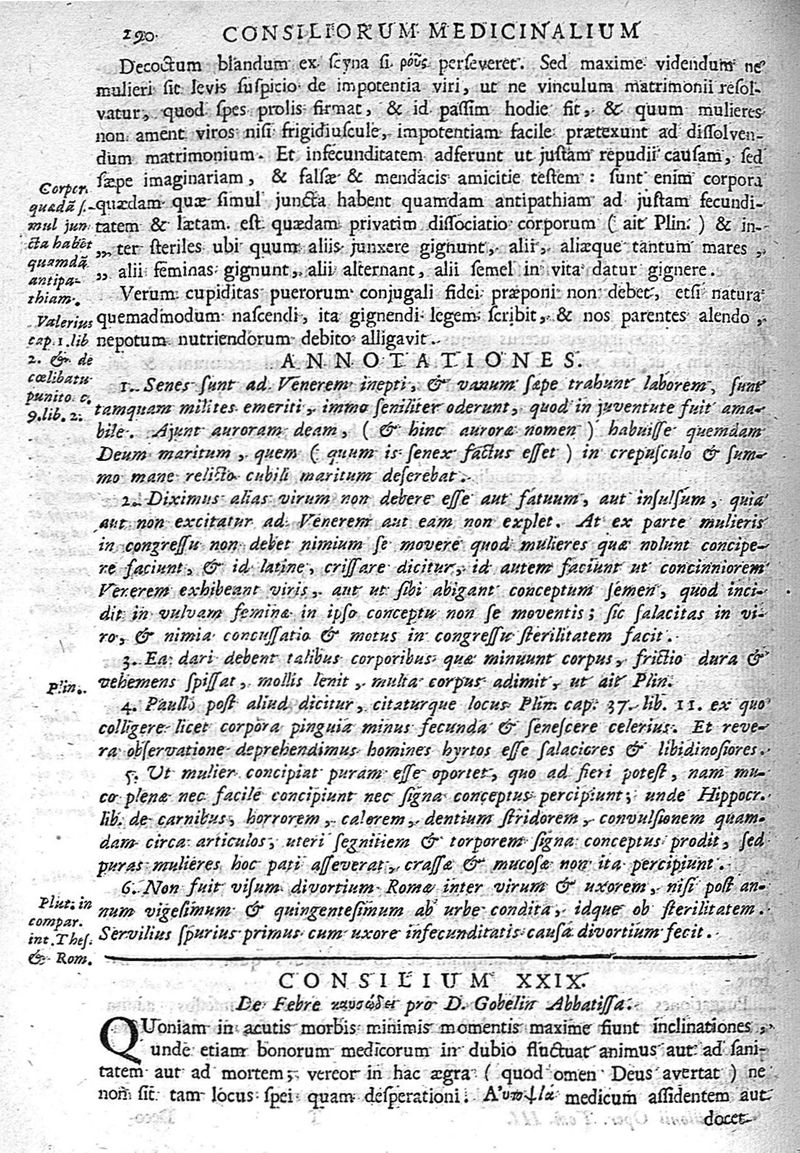 290. CONSILIORUM MEDICINALIUM
Decoctum blandum ex scyna si ῥοῦς perseveret. Sed maxime videndum ne
mulieri sit levis suspicio de impotentia viri, ut ne vinculum matrimonii resol-
vatur, quod spes prolis firmat, & id passim hodie fit, & quum mulieres
non ament viros nisi frigidiuscule, impotentiam facile prætexunt ad dissolven-
dum matrimonium. Et infecunditatem adferunt ut justam repudii causam, sed
sæpe imaginariam, & falsæ & mendacis amicitie testem: sunt enim corpora
quædam quæ simul juncta habent quamdam antipathiam ad justam fecundi-
tatem & lætam. est quædam privatim dissociatio corporum (ait Plin.) & in-
„ ter steriles ubi quum aliis junxere gignunt, alii, aliæque tantum mares,
„ alii feminas gignunt, alii alternant, alii semel in vita datur gignere.
Corpor.
quædã si-
mul jun
cta habẽt
quamdã
antipa-
thiam.
Verum cupiditas puerorum conjugali fidei præponi non debet, etsi natura
quemadmodum nascendi, ita gignendi legem scribit, & nos parentes alendo,
nepotum nutriendorum debito alligavit.
Valerius
cap. 1. lib
2. & de
cœlibatu
punito c.
9. lib. 2.
ANNOTATIONES.
1. Senes sunt ad Venerem inepti, & vanum sæpe trahunt laborem, sunt
tamquam milites emeriti, immo seniliter oderunt, quod in juventute fuit ama-
bile. Ajunt auroram deam, (& hinc auroræ nomen) habuisse quemdam
Deum maritum, quem (quum is senex factus esset) in crepusculo & sum-
mo mane relicto cubili maritum deserebat.
2. Diximus alias virum non debere esse aut fatuum, aut insulsum, quia
aut non excitatur ad Venerem aut eam non explet. At ex parte mulieris
in congressu non debet nimium se movere quod mulieres quæ nolunt concipe-
re faciunt, & id latine, crissare dicitur, id autem faciunt ut concinniorem
Venerem exhibeant viris, aut ut sibi abigant conceptum semen, quod inci-
dit in vulvam feminæ in ipso conceptu non se moventis; sic salacitas in vi-
ro, & nimia concussatio & motus in congressu sterilitatem facit.
3. Ea dari debent talibus corporibus quæ minuunt corpus, frictio dura &
vehemens spissat, mollis lenit, multa corpus adimit, ut ait Plin.
Plin.
4. Paullo post aliud dicitur, citaturque locus Plin. cap. 37. lib. 11. ex quo
colligere licet corpora pinguia minus fecunda & senescere celerius. Et reve-
ra observatione deprehendimus homines hyrtos esse salaciores & libidinosiores.
5. Ut mulier concipiat puram esse oportet, quo ad fieri potest, nam mu-
co plenæ nec facile concipiunt nec signa conceptus percipiunt; unde Hippocr.
lib. de carnibus, horrorem, calorem, dentium stridorem, convulsionem quam-
dam circa articulos, uteri segnitiem & torporem signa conceptus prodit, sed
puras mulieres hoc pati asseverat, crassæ & mucosæ non ita percipiunt.
6. Non fuit visum divortium Romæ inter virum & uxorem, nisi post an-
num vigesimum & quingentesimum ab urbe condita, idque ob sterilitatem.
Servilius spurius primus cum uxore infecunditatis causa divortium fecit.
Plut. in
compar.
int. Thes.
& Rom.
CONSILIUM XXIX.
De Febre καυσώδει pro D. Gobelin Abbatissa.
QUoniam in acutis morbis minimis momentis maxime fiunt inclinationes,
unde etiam bonorum medicorum in dubio fluctuat animus aut ad sani-
tatem aut ad mortem; vereor in hac ægra (quod omen Deus avertat) ne
non sit tam locus spei quam desperationi. medicum assidentem aut
docet